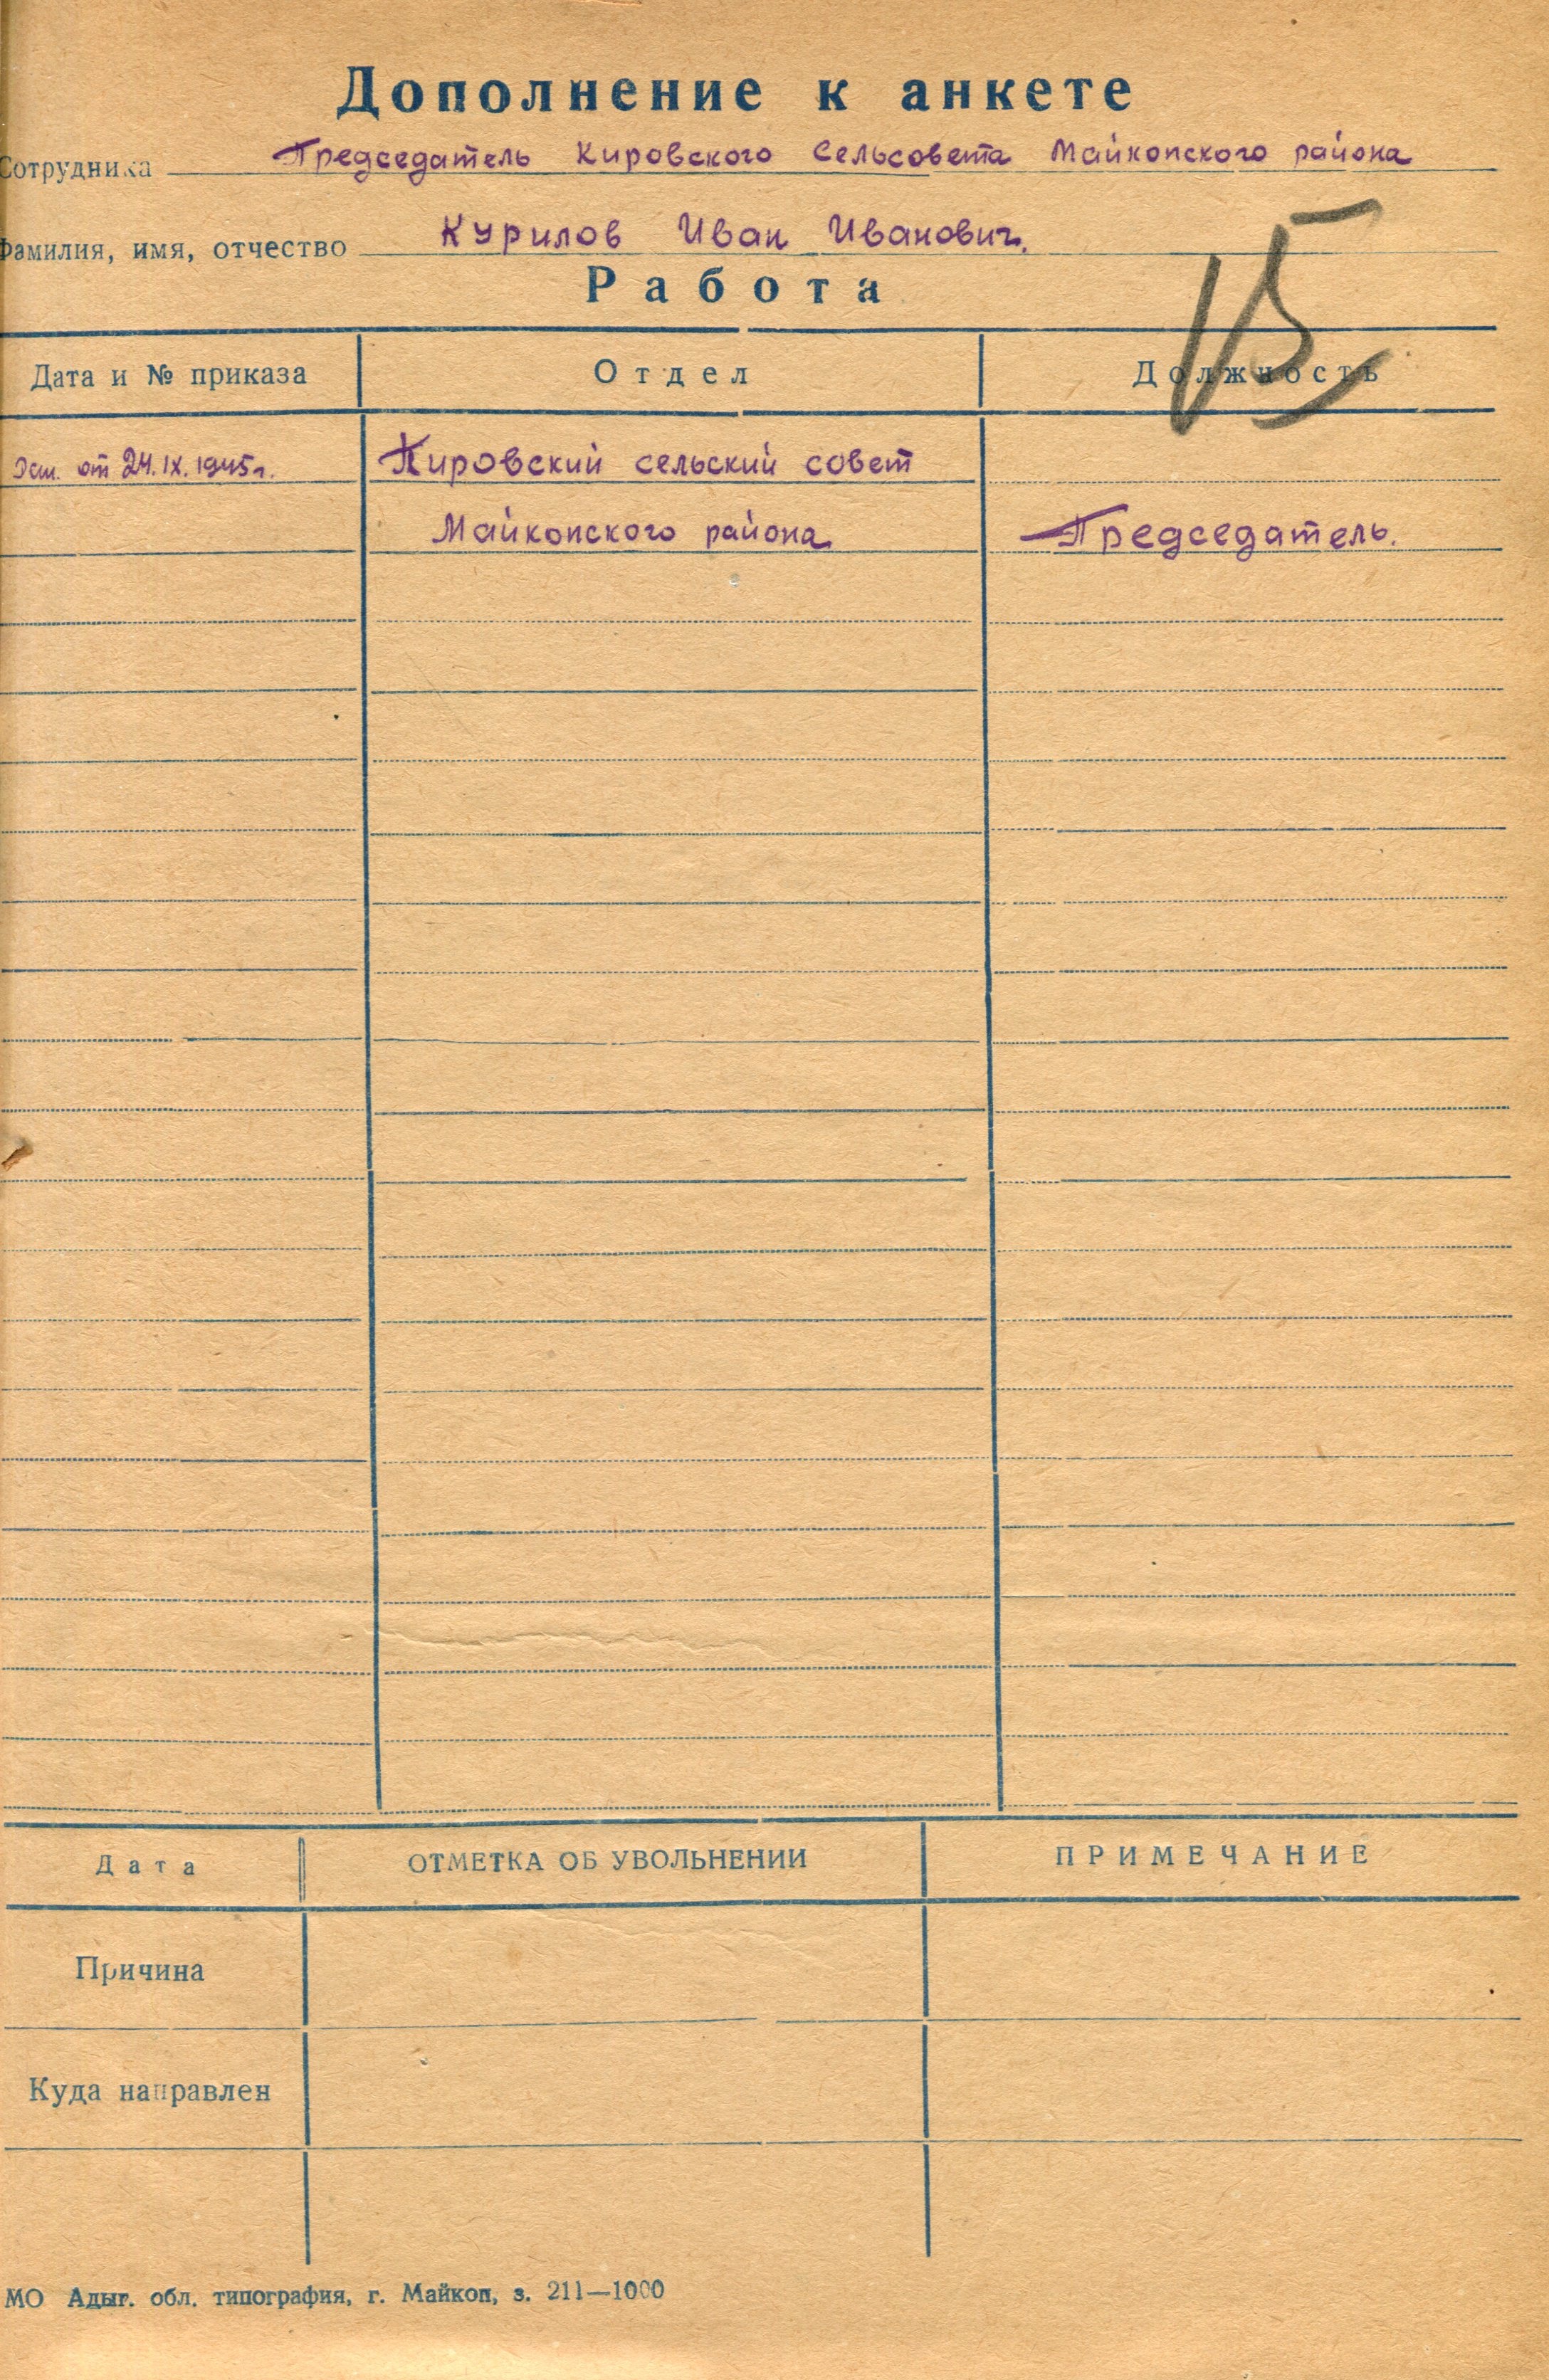 Дополнение к анкете
Сотрудника Председатель Кировского Сельсовета Майкопского района
Фамилия, имя, отчество Курилов Иван Иванович.
15
Работа
Дата и № приказа Отдел Должность
от 24.IX.1945г. Кировский сельский совет
Майкопского района Председатель.
Дата ОТМЕТКА ОБ УВОЛЬНЕНИИ ПРИМЕЧАНИЕ
Причина
Куда направлен
МО Адыг. обл. типография, г. Майкоп, з. 211—1000